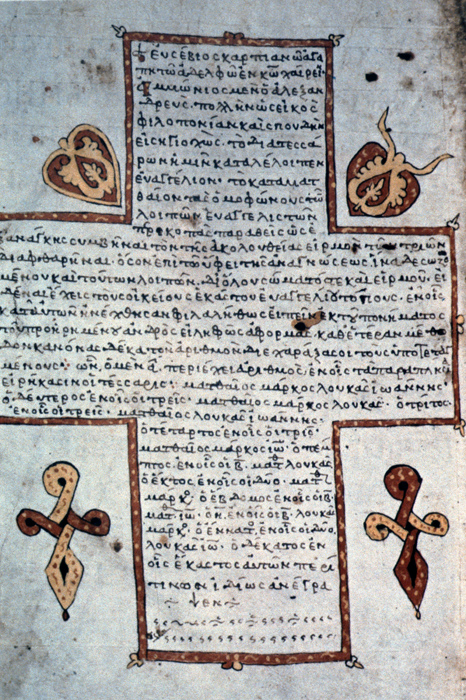 Εὐσέβιος Καρπιανῶ ἀγα
πητῶ ἀδελφῶ ἐν κω χαίρειν
Ἀμμώνιος μὲν ὁ ἀλεξαν
δρεύς· πολλὴν ὡς εἰκὸς
φιλοπονίαν καὶ σπουδὴν
εἰσηγιοχώς· τὸ διὰ τεσσά
ρων ἡμῖν καταλέλοιπεν
εὐαγγέλιον· τὸ κατὰ ματ
θαῖον τὰς ὁμοφώνους τῶν
λοιπῶν εὐαγγελιστῶν
προκοπὰς παραθεὶς ὡς ἐξ
ἀνάγκης συμβῆναι τὸν τῆς ἀκολουθείας εἱρμὸν τῶν τριῶν
διαφθαρῆναι· ὅσον ἐπὶ τῶ ὕφει τῆς ἀναγνώσεως ἵνα δὲ σωζο
μένου καὶ τοῦ τῶν λοιπῶν· δι' ὅλου σώματός τε καὶ εἱρμοῦ· εἰ
δέναι ἔχεις τοὺς οἰκείους ἑκάστου εὐαγγελιστοῦ τόπους· ἐν οἷς
κατ' αὐτῶν ἠνέχθησαν φιλαλήθως εἰπεῖν· ἐκ τοῦ πονήματος
τοῦ προηρημένου ἀνδρὸς εἰληφὼς ἀφορμάς· καθ' ἑτέραν μέθο
δον κανόνας· δέκα τὸν ἀριθμὸν· διεχάραξά σοι τοὺς ὑποτεταγ
μένους· ὧν, ὁ μὲν α περιέχει ἀριθμούς· ἐν οἷς τὰ παραπλήσια
εἰρήκασιν οἱ τέσσαρες· ματθαῖος μάρκος λουκᾶς ἰωάννης·
ὁ δεύτερος ἐν οἷς οἱ τρεῖς· ματθαῖος μάρκος λουκᾶς· ὁ τρίτος
ἐν οἷς οἱ τρεῖς· ματθαῖος λουκᾶς ἰωάννης·
ὁ τέταρτος ἐν οἷς οἱ τρεῖς·
ματθαῖος μάρκος ἰω· ὁ πέμ
πτος· ἐν οἷς οἱ β· ματθ λουκᾶς
ὁ ἕκτος ἐν οἷς οἱ δύο· ματθ
μάρκ· ὁ ἕβδομος ἐν οἷς οἱ β·
ματθ ἰω· ὁ η· ἐν οἷς οἱ β· λουκᾶς
μάρκ· ὁ ἔννατ ἐν οἷς οἱ δύο,
λουκᾶς ἰω· ὁ δέκατος ἐν
οἷς ἕκαστος αὐτῶν περί
τινων ἰδίως ἀνέγρα
ψεν